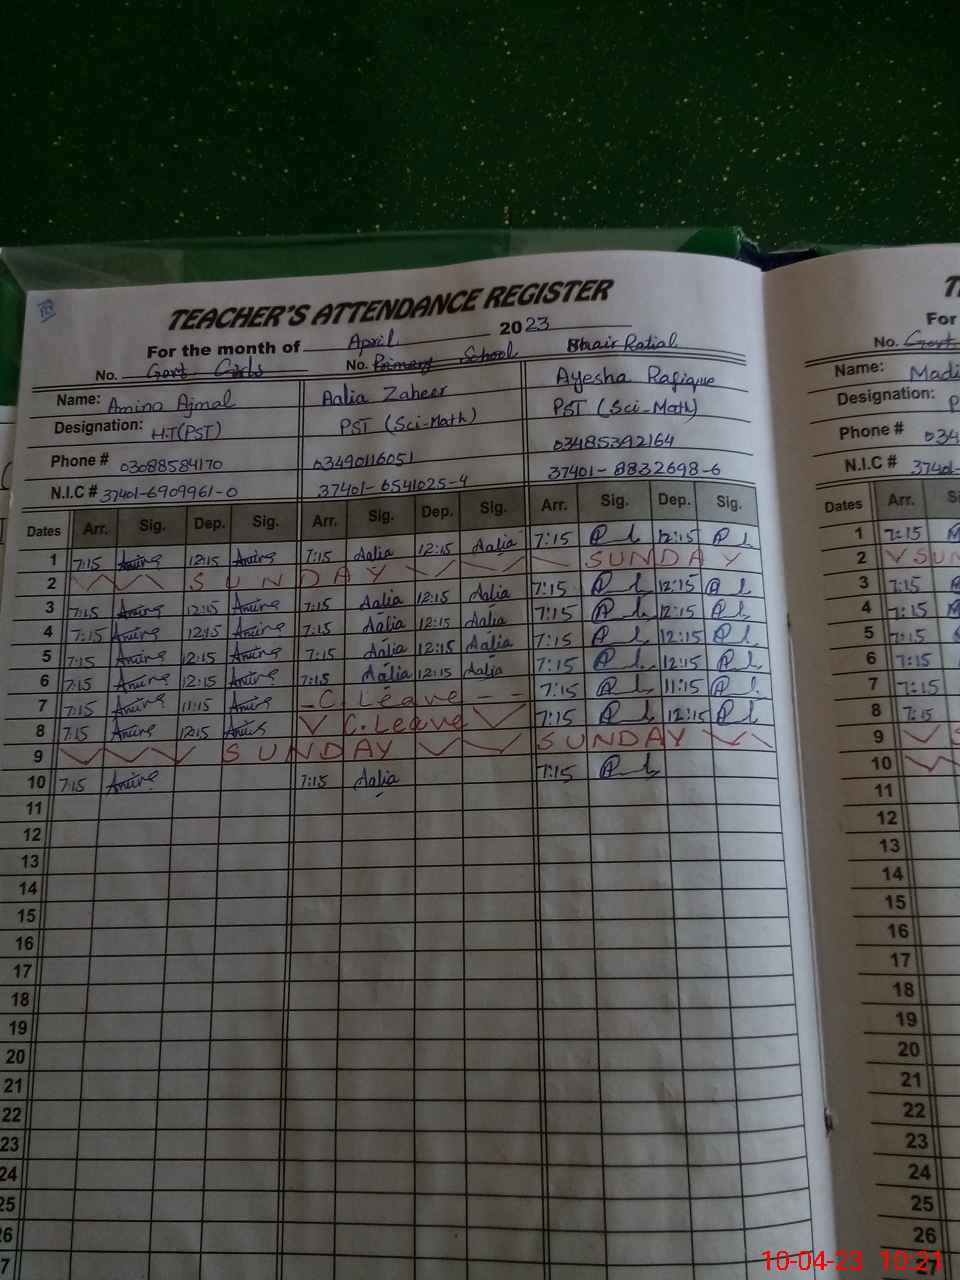 TEACHER'S ATTENDANCE REGISTER
For the month of April 2023
No. Govt Girls No. Primary School Ratial
Name: Amina Ajmal Aalia Zaheer Ayesha Rafique
Designation: H.T(PST) PST (Sci-Math) PST (Sci-Math)
Phone # 03088584170 03490116051 03485392164
N.I.C # 37401-6909961-0 37401-6541025-4 37401-8832698-6
Dates Arr. Sig. Dep. Sig. Arr. Sig. Dep. Sig. Arr. Sig. Dep. Sig.
1 7:15 12:15 7:15 Aalia 12:15 Aalia 7:15 12:15
2 SUNDAY SUNDAY
3 7:15 12:15 7:15 Aalia 12:15 Aalia 7:15 12:15
4 7:15 12:15 7:15 Aalia 12:15 Aalia 7:15 12:15
5 7:15 12:15 7:15 Aalia 12:15 Aalia 7:15 12:15
6 7:15 12:15 7:15 Aalia 12:15 Aalia 7:15 12:15
7 7:15 11:15 C. Leave 7:15 11:15
8 7:15 12:15 C. Leave 7:15 12:15
9 SUNDAY SUNDAY
10 7:15 7:15 Aalia 7:15
11
12
13
14
15
16
17
18
19
20
21
22
23
24
25
26
7
For
No. Govt
Name: Madi
Designation: P
Phone # 034
N.I.C # 37401-
Dates Arr. S
1 7:15
2 SUN
3 7:15
4 7:15
5 7:15
6 7:15
7 7:15
8 7:15
9 S
10
11
12
13
14
15
16
17
18
19
20
21
22
23
24
25
26
27
10-04-23 10:21